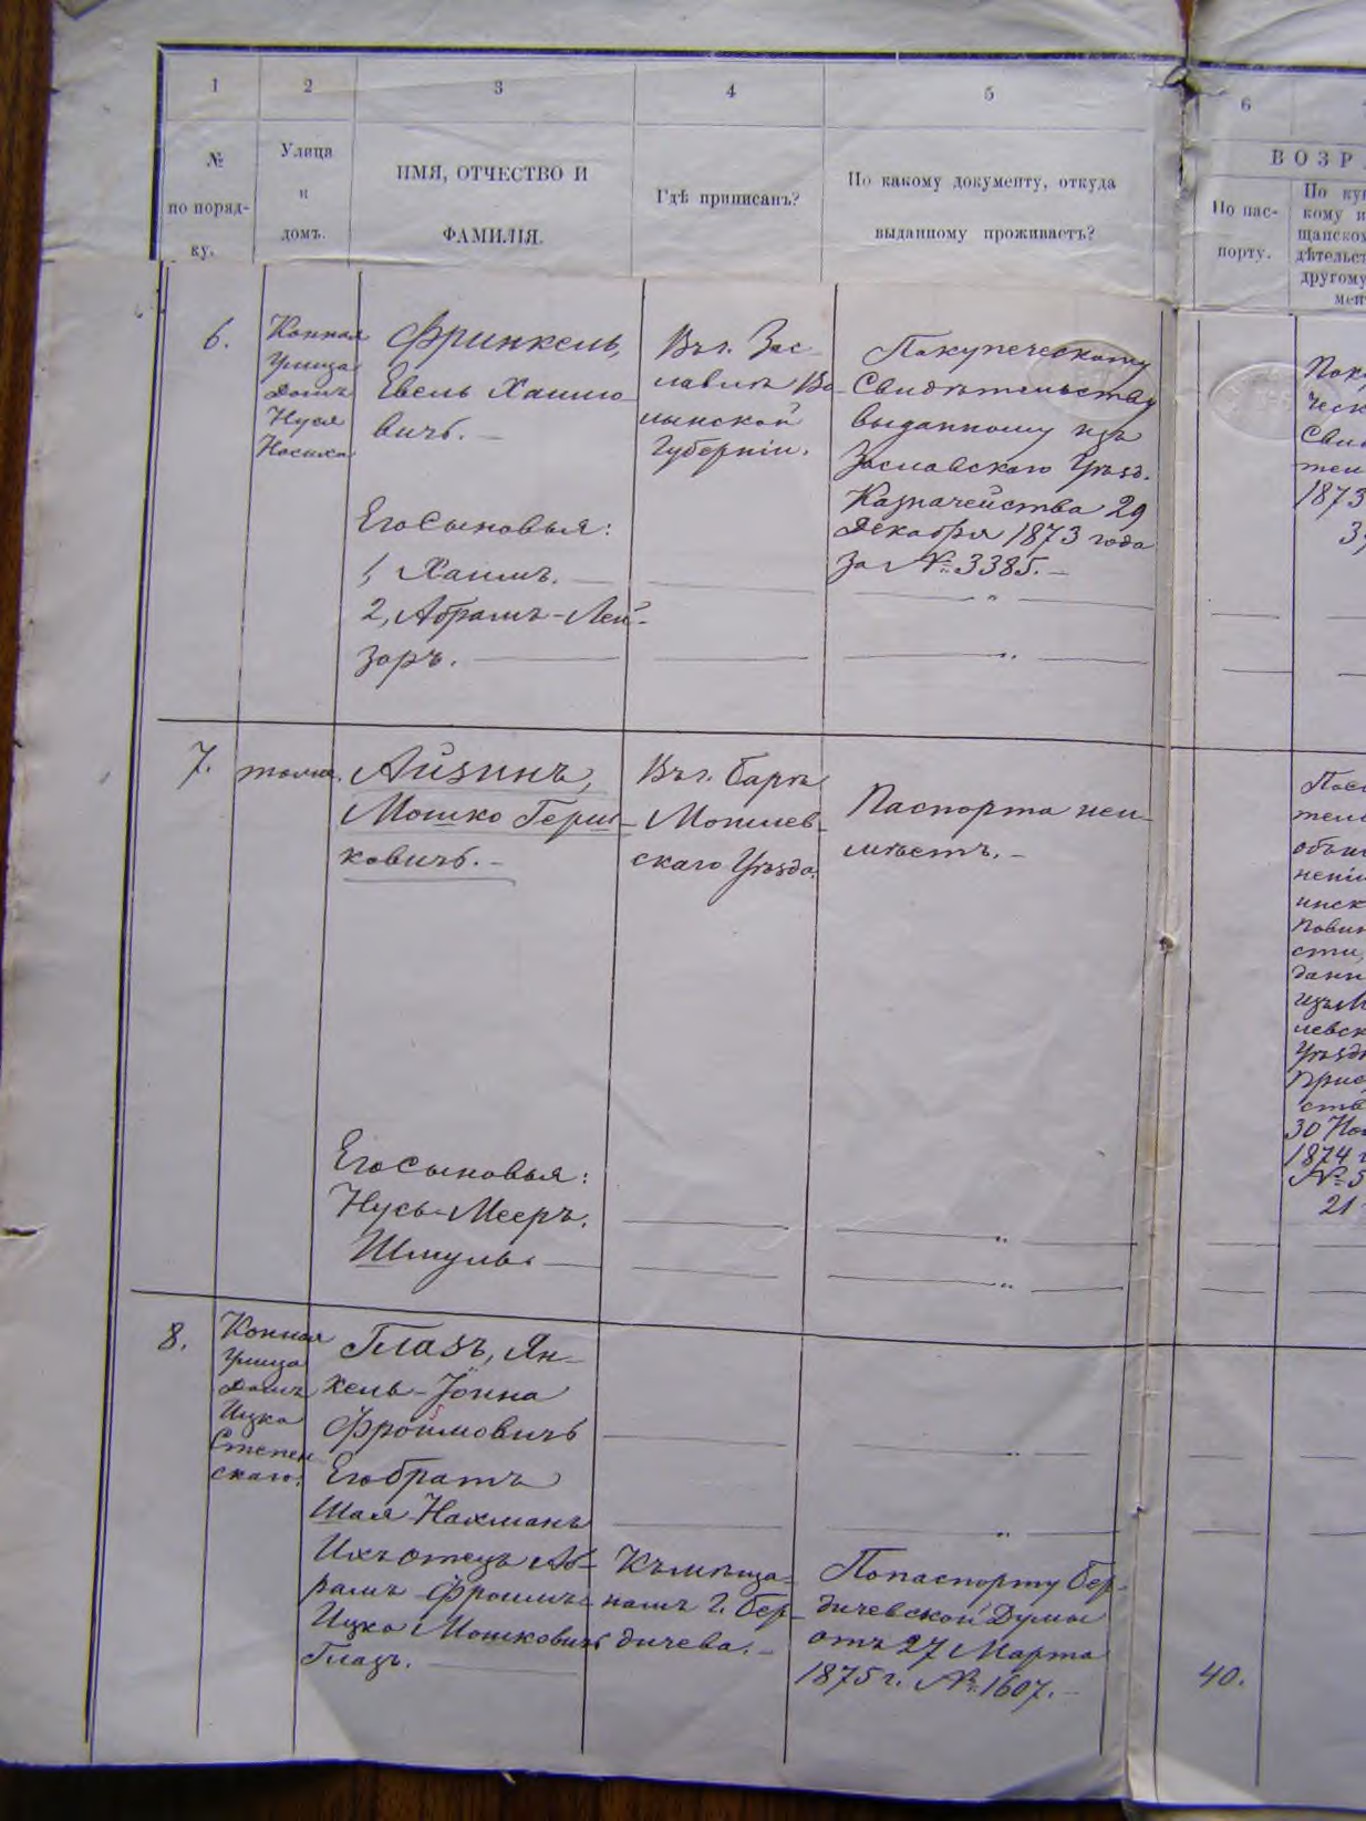 1
2
3
4
5
6
№
по поряд-
ку.
Улица
и
домъ.
ИМЯ, ОТЧЕСТВО И
ФАМИЛІЯ.
Гдѣ приписанъ?
По какому документу, откуда
выданному проживаетъ?
ВОЗР
По пас-
порту.
По куп
кому и
щанском
дѣтельст
другому
мен
6.
Конная
Улица
Домъ
Нуся
Фринкель,
Евель Хаимо-
вичъ. —
Въ г. Зас-
лавлѣ Во-
лынской
Губерніи.
По купеческому
Свидѣтельству
выданному изъ
Заславскаго Уѣзд.
Казначейства 29
Декабря 1873 года
за № 3385. —
Его Сыновья:
1, Хаимъ. —
2, Абрамъ-Лей-
зоръ. —
1873
7.
тоже.
Айзинъ,
Мошко Герш-
ковичъ. —
Въ г. Барѣ
Могилев-
скаго Уѣзда.
Паспорта неи-
мѣетъ. —
Его Сыновья:
Нусь-Мееръ.
Шмуль. —
обыи
нскі
повин
сти,
данн
изъ М
левск
Уѣзд
прис
ств
30 Ноя
1874 г
№ 5
21
8.
Конная
Улица
Домъ
Ицка
Степен
скаго.
Глазъ, Ян-
кель-Іойна
Фроимовичъ
Его братъ
Шая-Нахманъ
Ихъ отецъ Аб-
рамъ-Фроимъ-
Ицко Мошковичъ
Глазъ. —
Къ мѣща-
намъ г. Бер-
дичева. —
По паспорту Бер-
дичевской Думы
отъ 27 Марта
1875 г. № 1607. —
40.